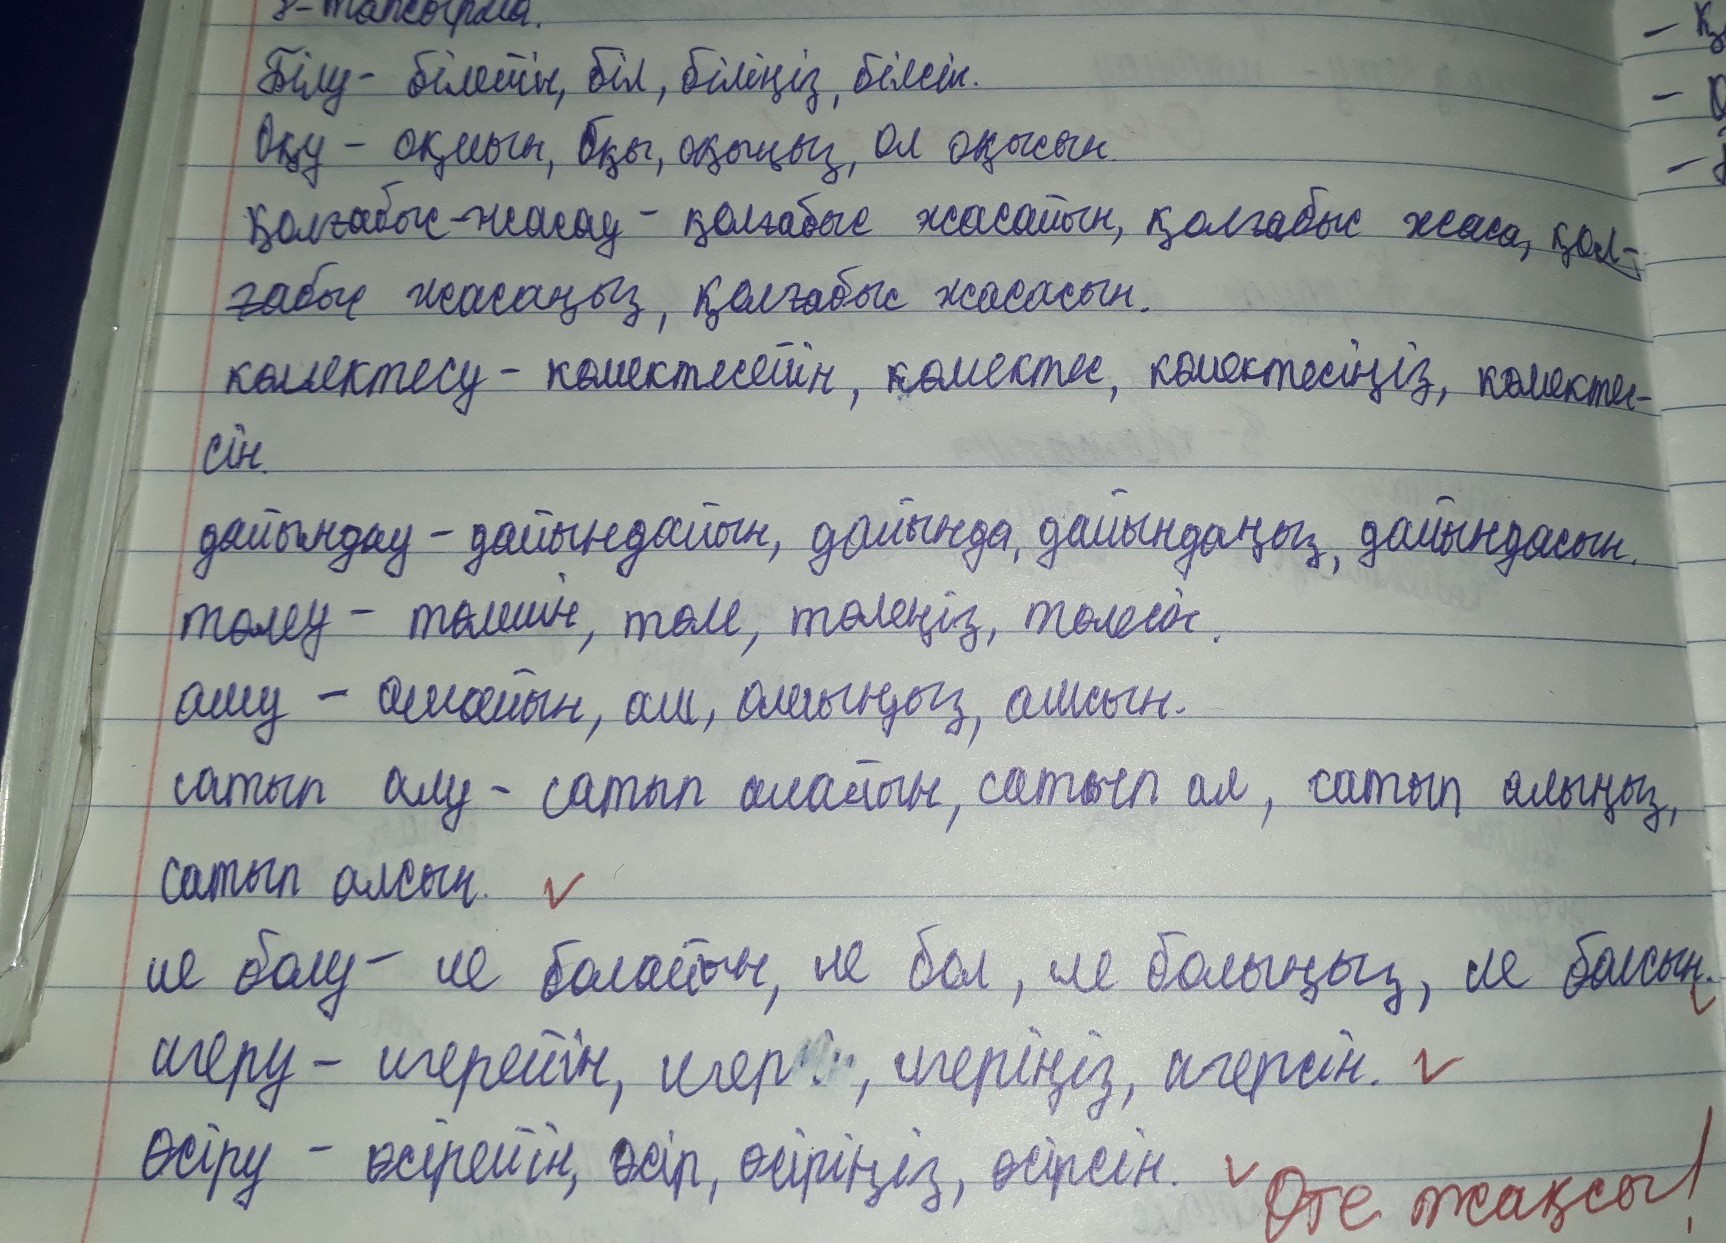 8-тапсырма.
Білу - білейін, біл, біліңіз, білсін.
Оқу - оқиын, оқы, оқыңыз, ол оқысын.
Қолғабыс-жасау - қолғабыс жасайын, қолғабыс жаса, қол-
ғабыс жасаңыз, қолғабыс жасасын.
көмектесу - көмектесейін, көмектес, көмектесіңіз, көмектес-
сін.
дайындау - дайындайын, дайында, дайындаңыз, дайындасын.
төлеу - төлейін, төле, төлеңіз, төлесін.
ашу - ашайын, аш, ашыңыз, ашсын.
сатып алу - сатып алайын, сатып ал, сатып алыңыз,
сатып алсын.
ие болу - ие болайын, ие бол, ие болыңыз, ие болсын.
игеру - игерейін, игер, игеріңіз, игерсін.
өсіру - өсірейін, өсір, өсіріңіз, өсірсін.
Өте жақсы!